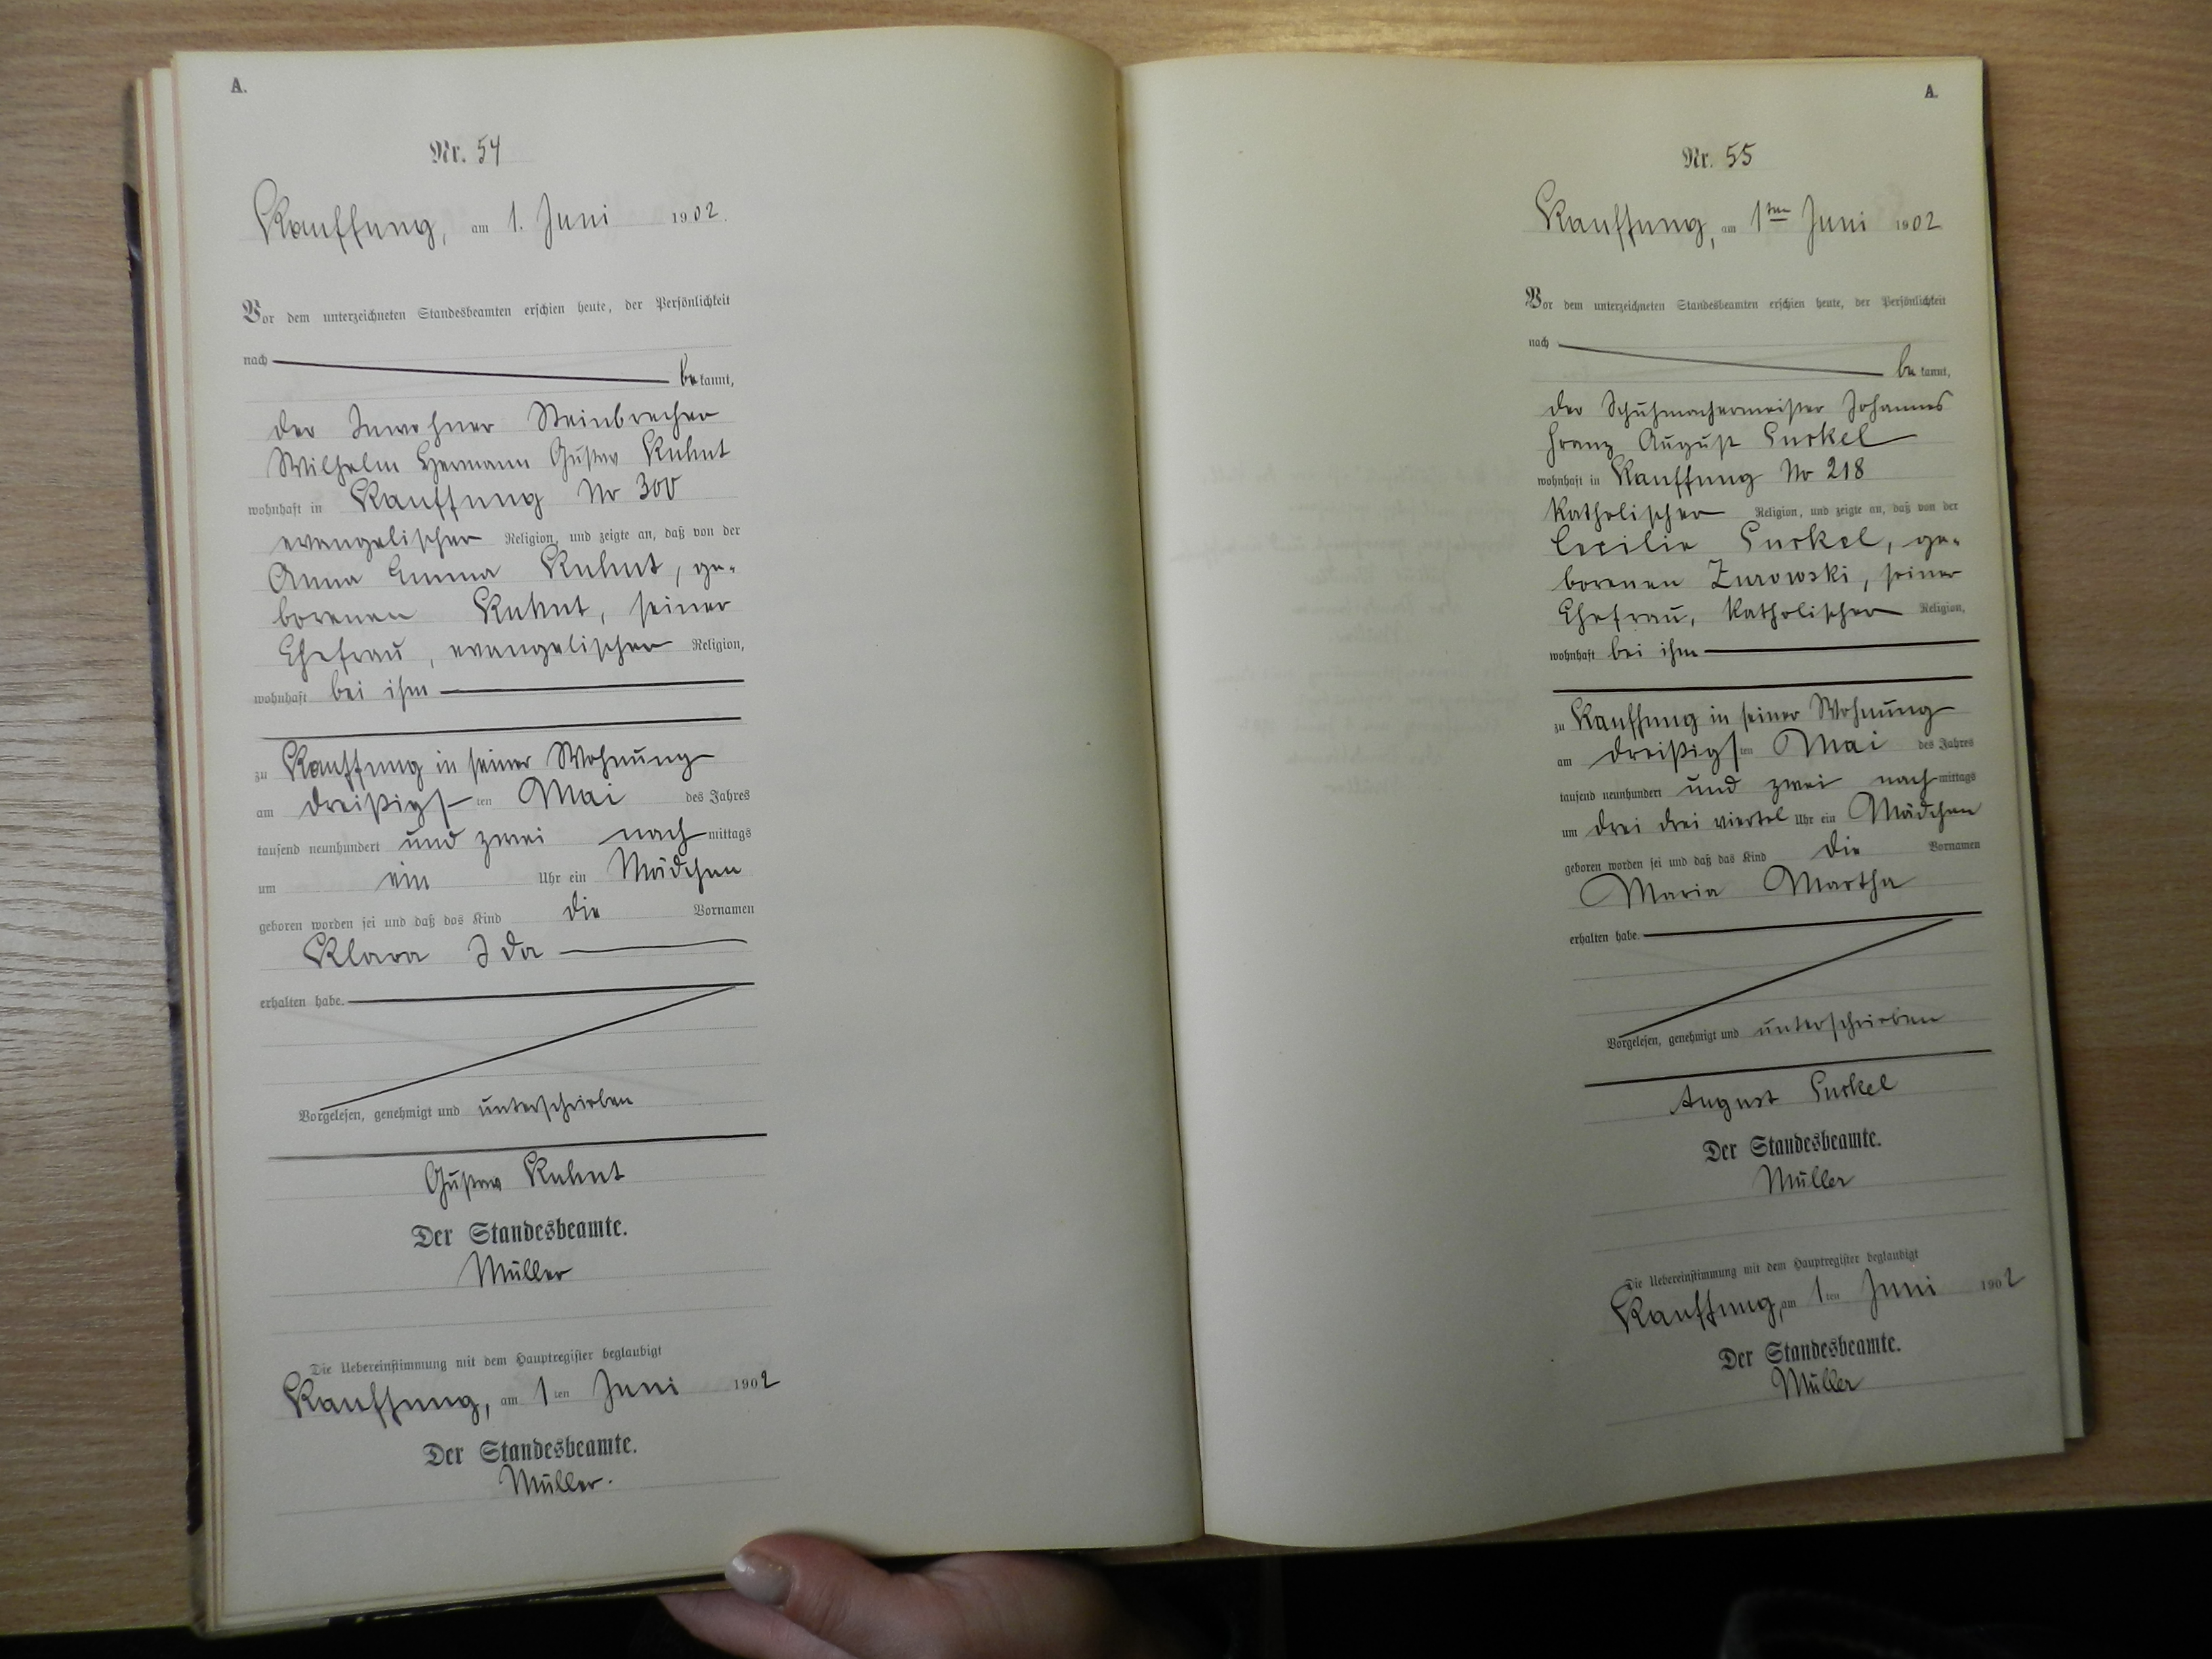 A.
Nr. 54
Kauffung, am 1. Juni 1902.
Vor dem unterzeichneten Standesbeamten erschien heute, der Persönlichkeit
nach
be kannt,
der Inwohner Steinbrecher
Wilhelm Hermann Gustav Kuhnt
wohnhaft in Kauffung No 300
evangelischer Religion, und zeigte an, daß von der
Anna Emma Kuhnt, ge-
borenen Kuhnt, seiner
Ehefrau, evangelischer Religion,
wohnhaft bei ihm
zu Kauffung in seiner Wohnung
am dreißigsten Mai des Jahres
tausend neunhundert und zwei nachmittags
um ein Uhr ein Mädchen
geboren worden sei und daß das Kind die Vornamen
Klara Ida
erhalten habe.
Vorgelesen, genehmigt und unterschrieben
Gustav Kuhnt
Der Standesbeamte.
Müller
Die Uebereinstimmung mit dem Hauptregister beglaubigt
Kauffung, am 1ten Juni 1902
Der Standesbeamte.
Müller.
A.
Nr. 55
Kauffung, am 1ten Juni 1902
Vor dem unterzeichneten Standesbeamten erschien heute, der Persönlichkeit
nach
be kannt,
der Schuhmachermeister Johannes
Franz August
wohnhaft in Kauffung No 218
katholischer Religion, und zeigte an, daß von der
Cecilie ge-
borenen Zurowski, seiner
Ehefrau, katholischer Religion,
wohnhaft bei ihm
zu Kauffung in seiner Wohnung
am dreißigsten Mai des Jahres
tausend neunhundert und zwei nachmittags
um drei drei viertel Uhr ein Mädchen
geboren worden sei und daß das Kind die Vornamen
Maria Martha
erhalten habe.
Vorgelesen, genehmigt und unterschrieben
August
Der Standesbeamte.
Müller
Die Uebereinstimmung mit dem Hauptregister beglaubigt
Kauffung, am 1ten Juni 1902
Der Standesbeamte.
Müller